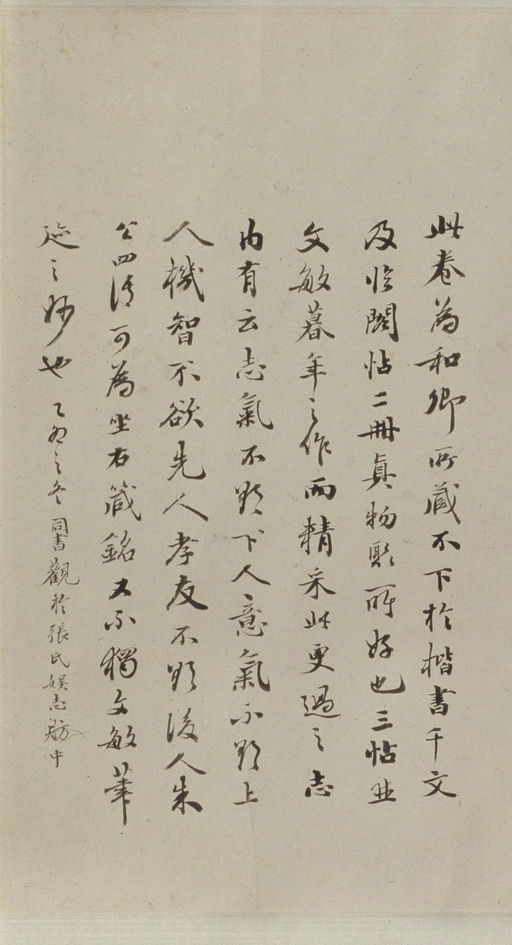 此卷為和卿所藏不下於楷書千文
及臨閣帖二冊真物聚所好也三帖皆
文敏暮年之作而精采此更過之志
內有云志氣不欲下人意氣不欲上
人機智不欲先人孝友不欲後人朱
公四語可為坐右箴銘又不獨文敏筆
迹之妙也乙之冬同書觀於張氏娛志舫中